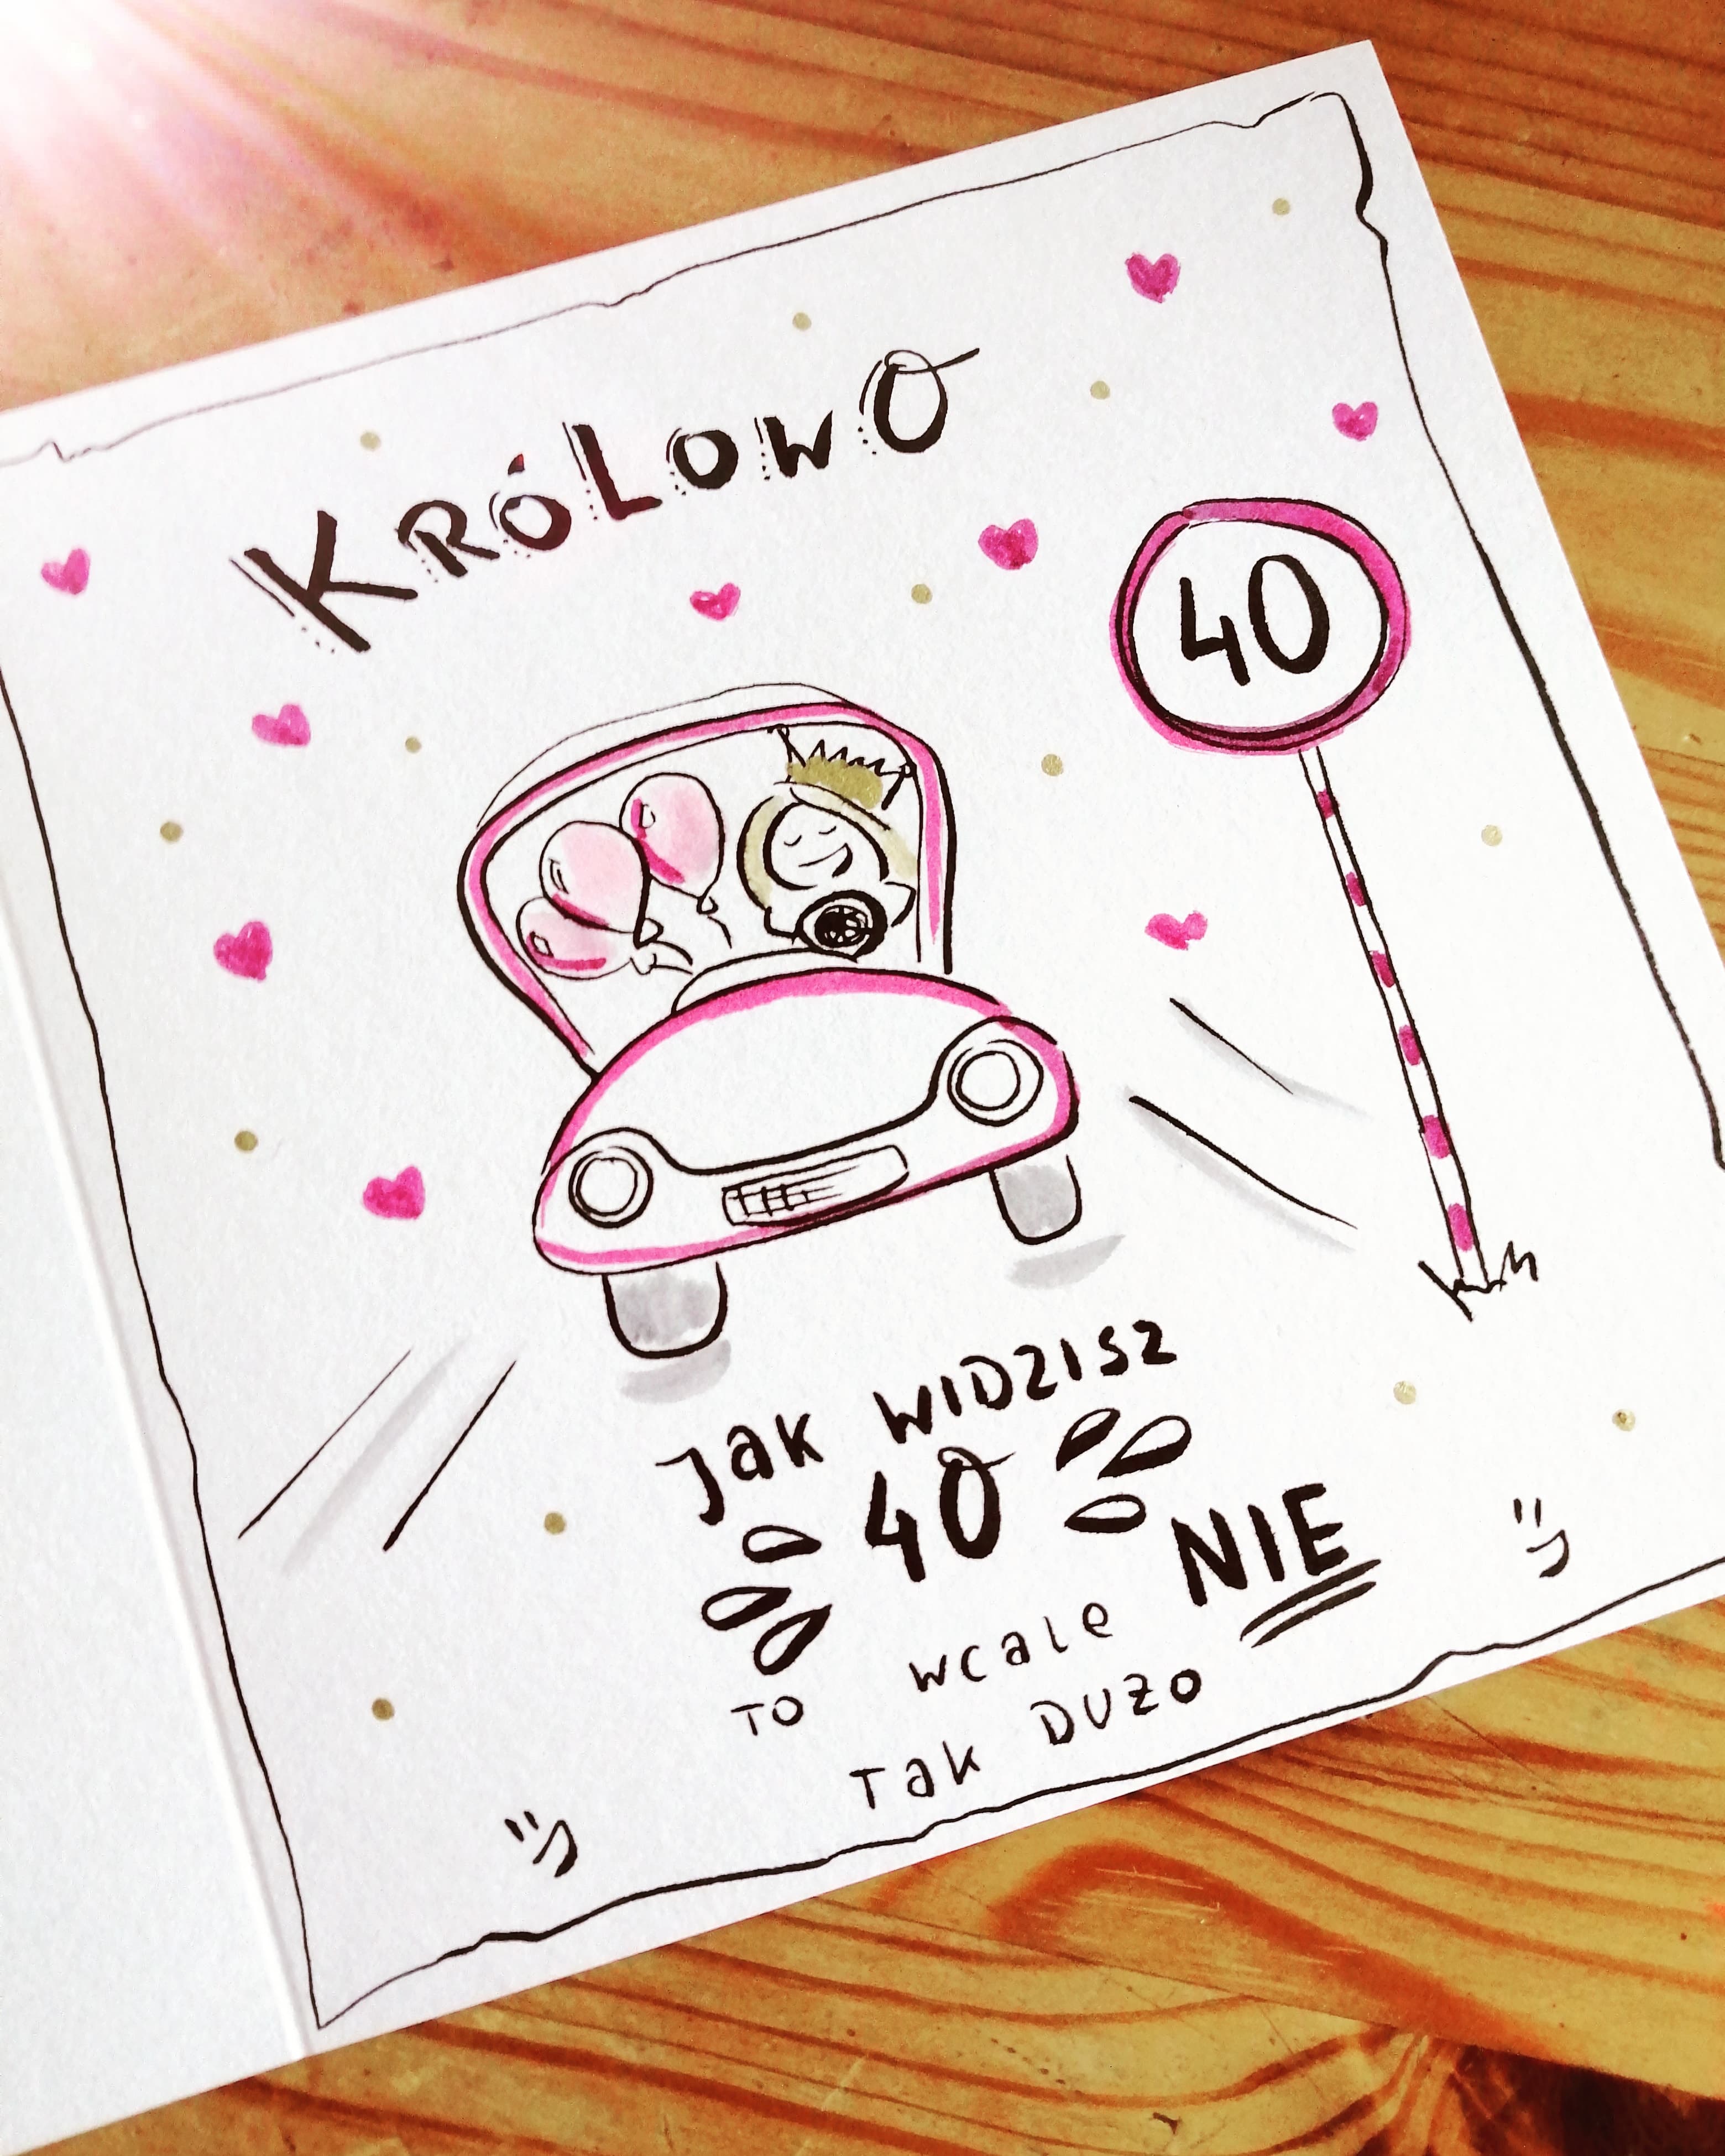 KRÓLOWO
40
JAK WIDZISZ
40
TO wcale NIE
TAK DUZO